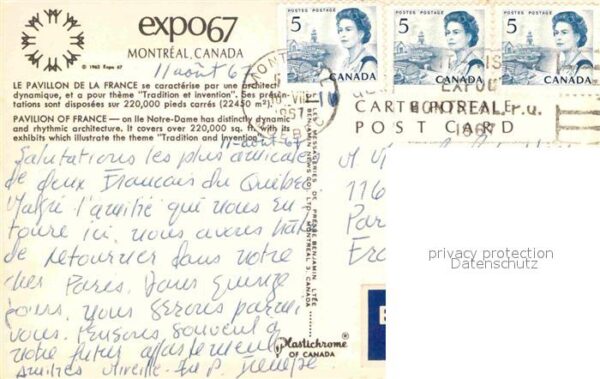 expo67
MONTRÉAL, CANADA
© 1963 Expo 67
11 août 67
LE PAVILLON DE LA FRANCE se caractérise par une architect
dynamique, et a pour thème "Tradition et invention". Ses présen-
tations sont disposées sur 220,000 pieds carrés (22450 m²).
PAVILION OF FRANCE — on Ile Notre-Dame has distinctly dynamic
and rhythmic architecture. It covers over 220,000 sq. ft. with its
exhibits which illustrate the theme "Tradition and Invention".
11-août 67
Salutations les plus amicales
de deux Français du Québec
Malgré l'amitié qui nous en
toure ici, nous avons hâte
de retourner dans notre
cher Paris. Dans quinze
jours, nous serons parmi
vous. Pensons souvent à
notre futur appartement
Amitiés Mireille
POSTES POSTAGE
5
CANADA
POSTES POSTAGE
5
CANADA
POSTES POSTAGE
5
CANADA
MONT
1967
QUÉBEC
CARTE POSTALE
POST CARD
116
Par
Fra
LES MESSAGERIES DE PRESSE BENJAMIN, LTÉE
BENJAMIN NEWS CO. LTD. MONTREAL 3, CANADA
Plastichrome®
OF CANADA
privacy protection
Datenschutz